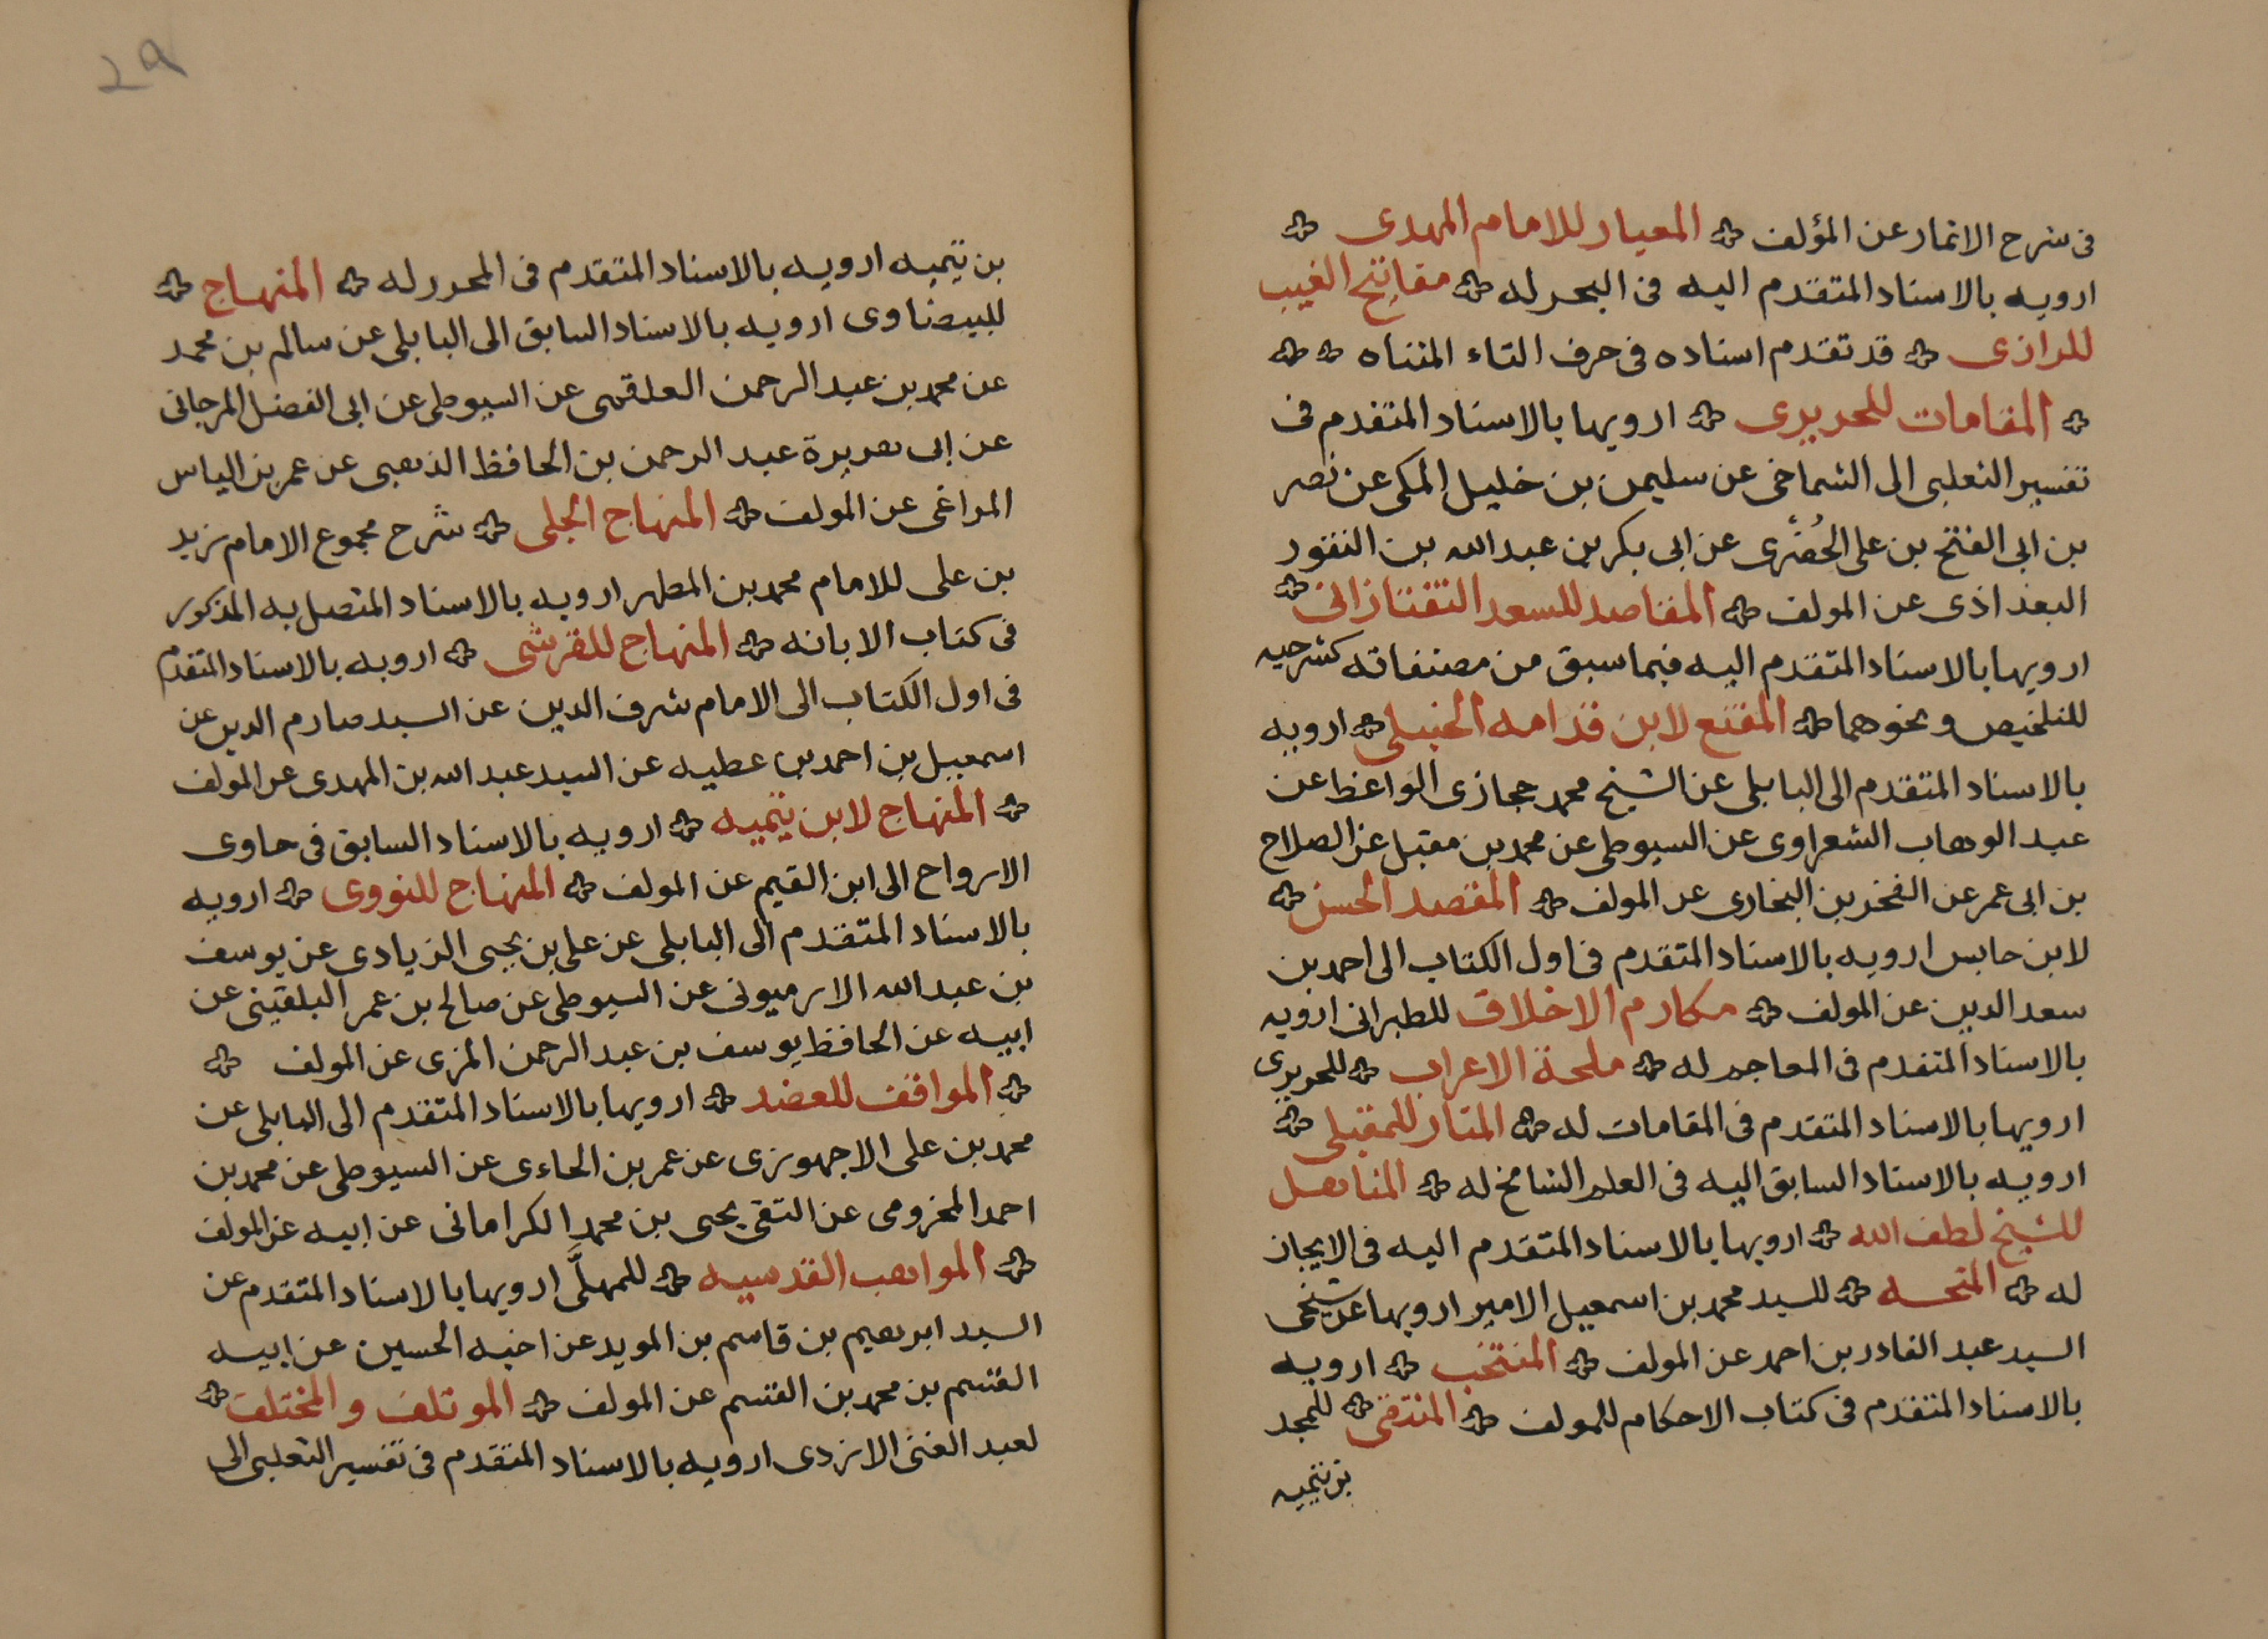 فى شرح الاثمار عن المؤلف ✤ المعيار للامام المهدى ✤
ارويه بالاسناد المتقدم اليه فى البحر له ✤ مفاتيح الغيب
للرازى ✤ قد تقدم اسناده فى حرف التاء المثناه ✤ ✤
✤ المقامات للحريرى ✤ ارويها بالاسناد المتقدم فى
تفسير الثعلبى الى الشماخى عن سليمن بن خليل المكى عن نصر
بن ابى الفتح بن على الحُضرى عن ابى بكر بن عبد الله بن النقور
البغداذى عن المولف ✤ المقاصد للسعد التفتازانى ✤
ارويها بالاسناد المتقدم اليه فيما سبق من مصنفاته كشرحيه
للتلخيص ونحوهما ✤ المقنع لابن قدامه الحنبلى ✤ ارويه
بالاسناد المتقدم الى البابلى عن الشيخ محمد حجازى الواعظ عن
عبد الوهاب الشعراوى عن السيوطى عن محمد بن مقبل عن الصلاح
بن ابى عمر عن الفخر بن البخارى عن المولف ✤ المقصد الحسن ✤
لابن حابس ارويه بالاسناد المتقدم فى اول الكتاب الى احمد بن
سعد الدين عن المولف ✤ مكارم الاخلاق للطبرانى ارويه
بالاسناد المتقدم فى المعاجم له ✤ ملحة الاعراب ✤ للحريرى
ارويها بالاسناد المتقدم فى المقامات له ✤ المنار للمقبلى ✤
ارويه بالاسناد السابق اليه فى العلم الشامخ له ✤ المناهل
للشيخ لطف الله ✤ ارويها بالاسناد المتقدم اليه فى الايجاز
له ✤ المنحه ✤ للسيد محمد بن اسمعيل الامير ارويها عن شيخى
السيد عبد القادر بن احمد عن المولف ✤ المنتخب ✤ ارويه
بالاسناد المتقدم فى كتاب الاحكام للمولف ✤ المنتقى ✤ للمجد
بن تيميه
29
بن تيميه ارويه بالاسناد المتقدم فى المحرر له ✤ المنهاج ✤
للبيضاوى ارويه بالاسناد السابق الى البابلى عن سالم بن محمد
عن محمد بن عبد الرحمن العلقمى عن السيوطى عن ابى الفضل المرجانى
عن ابى هريرة عبد الرحمن بن الحافظ الذهبى عن عمر بن الياس
المراغى عن المولف ✤ المنهاج الجلى ✤ شرح مجموع الامام زيد
بن على للامام محمد بن المطهر ارويه بالاسناد المتصل به المذكور
فى كتاب الابانه ✤ المنهاج للقرشى ✤ ارويه بالاسناد المتقدم
فى اول الكتاب الى الامام شرف الدين عن السيد صارم الدين عن
اسمعيل بن احمد بن عطيه عن السيد عبد الله بن المهدى عن المولف
✤ المنهاج لابن تيميه ✤ ارويه بالاسناد السابق فى حاوى
الارواح الى ابن القيم عن المولف ✤ المنهاج للنووى ✤ ارويه
بالاسناد المتقدم الى البابلى عن على بن يحيى الزيادى عن يوسف
بن عبد الله الارميونى عن السيوطى عن صالح بن عمر البلقينى عن
ابيه عن الحافظ يوسف بن عبد الرحمن المزى عن المولف ✤
✤ المواقف للعضد ✤ ارويها بالاسناد المتقدم الى البابلى عن
محمد بن على الاجهورى عن عمر بن الحاءى عن السيوطى عن محمد بن
احمد المخزومى عن التقى يحيى بن محمد الكرامانى عن ابيه عن المولف
✤ المواهب القدسيه ✤ للمهلَّى ارويها بالاسناد المتقدم عن
السيد ابرهيم بن قاسم بن المويد عن اخيه الحسين عن ابيه
القسم بن محمد بن القسم عن المولف ✤ الموتلف والمختلف ✤
لعبد الغنى الازدى ارويه بالاسناد المتقدم فى تفسير الثعلبى الى